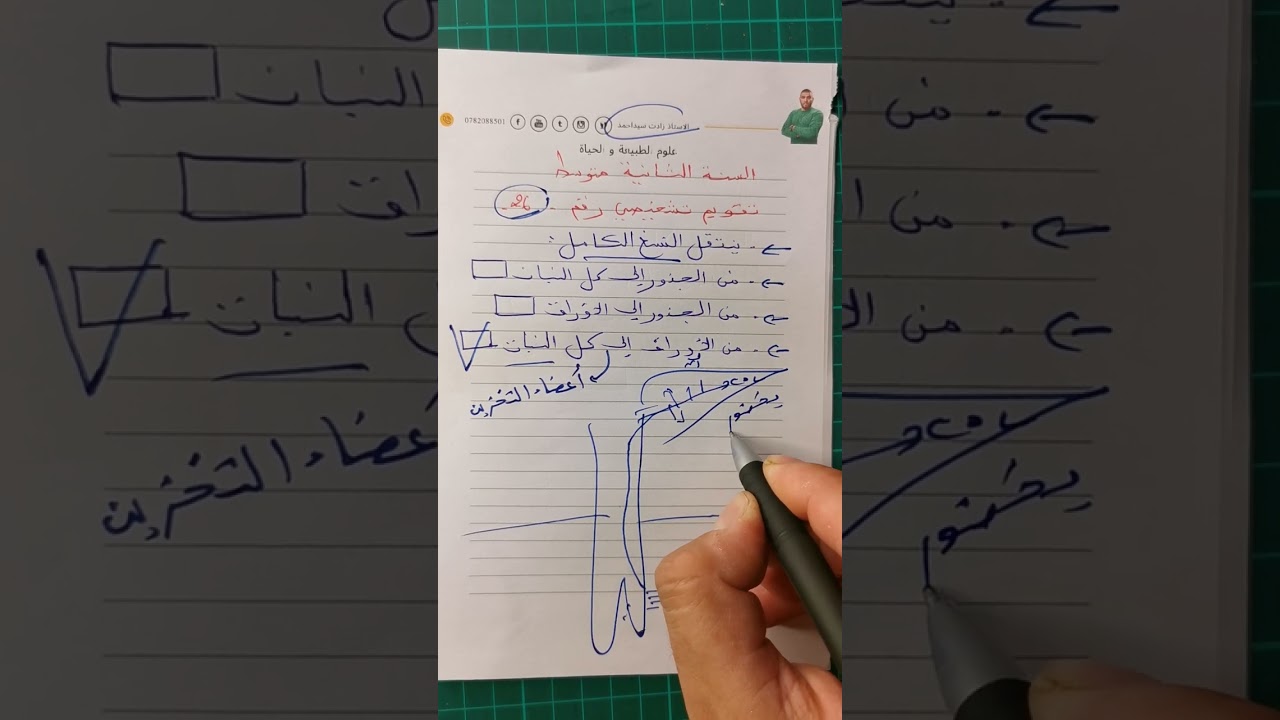 الاستاذ زادت سيداحمد 0782088501
علوم الطبيعة و الحياة
السنة الثانية متوسط
تقويم تشخيصي رقم 26
ينتقل النسغ الكامل:
من الجذور إلى كل النبات
من الجذور إلى الاوراق
من الاوراق إلى كل النبات
أعضاء التخزين